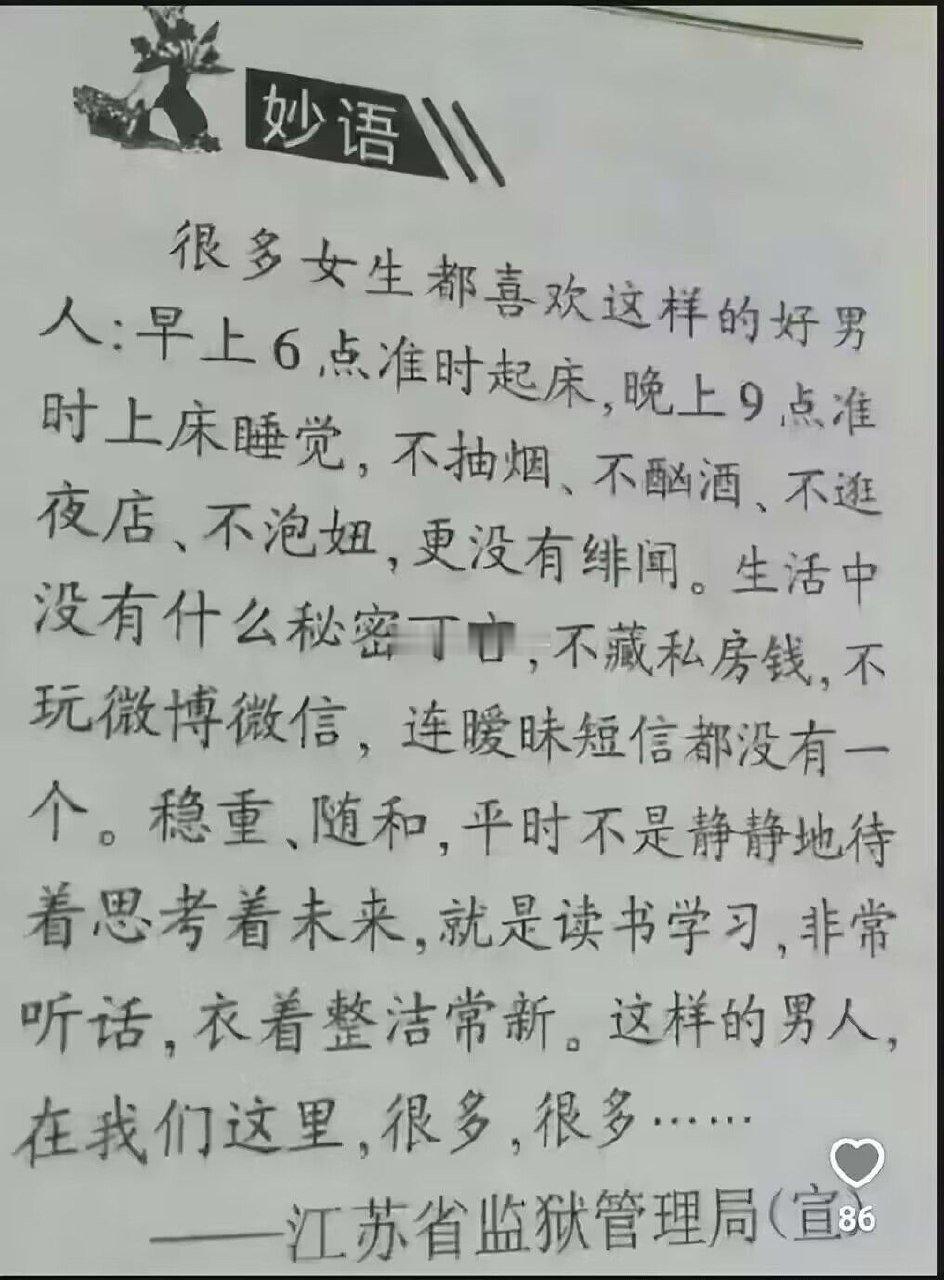 妙语
很多女生都喜欢这样的好男
人:早上6点准时起床,晚上9点准
时上床睡觉,不抽烟、不酗酒、不逛
夜店、不泡妞,更没有绯闻。生活中
没有什么秘密,不藏私房钱,不
玩微博微信,连暧昧短信都没有一
个。稳重、随和,平时不是静静地待
着思考着未来,就是读书学习,非常
听话,衣着整洁常新。这样的男人,
在我们这里,很多,很多……
——江苏省监狱管理局(宣)
86